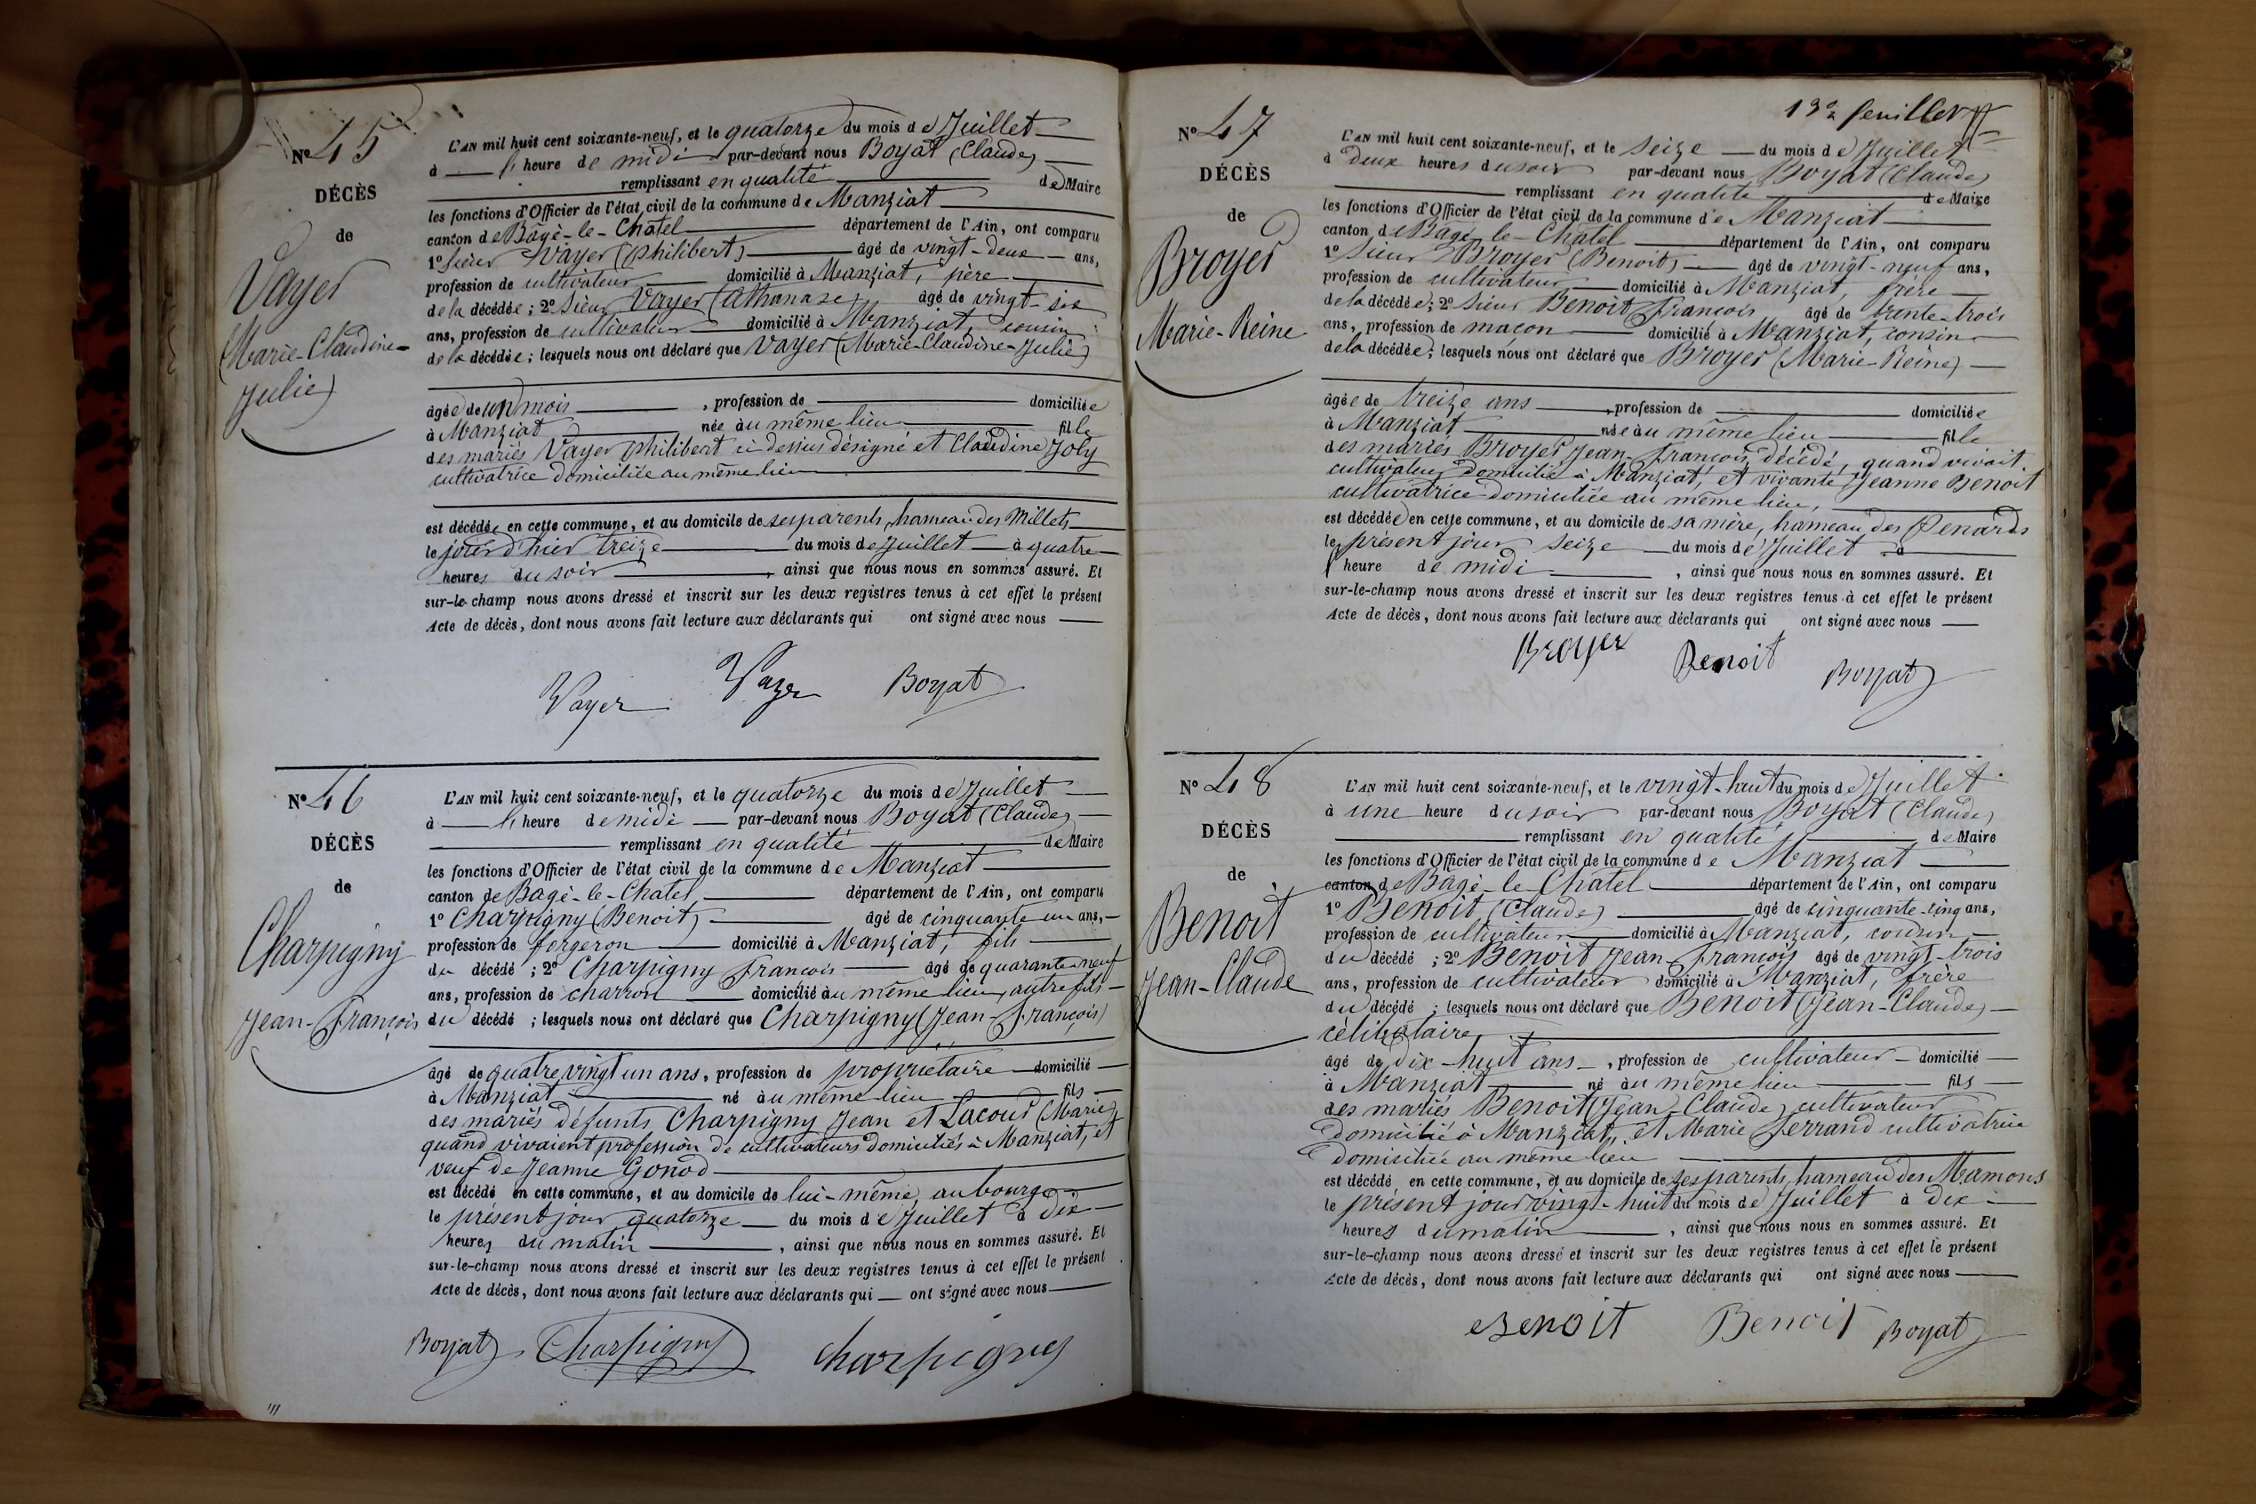 N° 45
DÉCÈS
de
Vayer
(Marie-Claudine-
Julie)
L'AN mil huit cent soixante-neuf, et le quatorze du mois de Juillet
à l' heure de midi par-devant nous Boyat (Claude)
remplissant en qualité de Maire
les fonctions d'Officier de l'état civil de la commune de Manziat
canton de Bâgé-le-Châtel département de l'Ain, ont comparu
1° Sieur Vayer (Philibert) âgé de vingt-deux ans,
profession de cultivateur domicilié à Manziat, père
de la décédée ; 2° Sieur Vayer (Athanaze) âgé de vingt-six
ans, profession de cultivateur domicilié à Manziat, cousin
de la décédée ; lesquels nous ont déclaré que Vayer (Marie-Claudine-Julie)
âgée de un mois , profession de domiciliée
à Manziat née au même lieu fille
des mariés Vayer Philibert ci-dessus désigné et Claudine Joly
cultivatrice domiciliée au même lieu
est décédée en cette commune, et au domicile de ses parents, hameau des Millets
le jour d'hier treize du mois de Juillet à quatre
heures du soir , ainsi que nous nous en sommes assuré. Et
sur-le-champ nous avons dressé et inscrit sur les deux registres tenus à cet effet le présent
Acte de décès, dont nous avons fait lecture aux déclarants qui ont signé avec nous
Vayer Vayer Boyat
N° 46
DÉCÈS
de
Charpigny
Jean-François
L'AN mil huit cent soixante-neuf, et le quatorze du mois de Juillet
à l' heure de midi par-devant nous Boyat (Claude)
remplissant en qualité de Maire
les fonctions d'Officier de l'état civil de la commune de Manziat
canton de Bâgé-le-Chatel département de l'Ain, ont comparu
1° Charpigny (Benoit) âgé de cinquante un ans,
profession de forgeron domicilié à Manziat, fils
du décédé ; 2° Charpigny François âgé de quarante-neuf
ans, profession de charron domicilié au même lieu, autre fils
du décédé ; lesquels nous ont déclaré que Charpigny (Jean-François)
âgé de quatre vingt un ans, profession de propriétaire domicilié
à Manziat né au même lieu fils
des mariés défunts Charpigny Jean et Lacour (Marie)
quand vivaient profession de cultivateurs domiciliés à Manziat, et
veuf de Jeanne Gonod
est décédé en cette commune, et au domicile de lui-même, au bourg
le présent jour quatorze du mois de Juillet à dix
heures du matin , ainsi que nous nous en sommes assuré. Et
sur-le-champ nous avons dressé et inscrit sur les deux registres tenus à cet effet le présent
Acte de décès, dont nous avons fait lecture aux déclarants qui ont signé avec nous
Boyat Charpigny Charpigny
13e feuillet
N° 47
DÉCÈS
de
Broyer
Marie-Reine
L'AN mil huit cent soixante-neuf, et le seize du mois de Juillet
à deux heures du soir par-devant nous Boyat (Claude)
remplissant en qualité de Maire
les fonctions d'Officier de l'état civil de la commune de Manziat
canton de Bâgé-le-Chatel département de l'Ain, ont comparu
1° Sieur Broyer (Benoit) âgé de vingt-neuf ans,
profession de cultivateur domicilié à Manziat, frère
de la décédée ; 2° Sieur Benoit François âgé de trente-trois
ans, profession de maçon domicilié à Manziat, cousin
de la décédée ; lesquels nous ont déclaré que Broyer (Marie-Reine)
âgée de treize ans , profession de domiciliée
à Manziat née au même lieu fille
des mariés Broyer Jean-François, décédé, quand vivait
cultivateur domicilié à Manziat, et vivante Jeanne Benoit
cultivatrice domiciliée au même lieu,
est décédée en cette commune, et au domicile de sa mère, hameau des Penards
le présent jour seize du mois de Juillet à
l' heure de midi , ainsi que nous nous en sommes assuré. Et
sur-le-champ nous avons dressé et inscrit sur les deux registres tenus à cet effet le présent
Acte de décès, dont nous avons fait lecture aux déclarants qui ont signé avec nous
Broyer Benoit Boyat
N° 48
DÉCÈS
de
Benoit
Jean-Claude
L'AN mil huit cent soixante-neuf, et le vingt-huit du mois de Juillet
à une heure du soir par-devant nous Boyat (Claude)
remplissant en qualité de Maire
les fonctions d'Officier de l'état civil de la commune de Manziat
canton de Bâgé-le-Châtel département de l'Ain, ont comparu
1° Benoit (Claude) âgé de cinquante-cinq ans,
profession de cultivateur domicilié à Manziat, cousin
du décédé ; 2° Benoit Jean-François âgé de vingt-trois
ans, profession de cultivateur domicilié à Manziat, frère
du décédé ; lesquels nous ont déclaré que Benoit (Jean-Claude)
célibataire
âgé de dix-huit ans , profession de cultivateur domicilié
à Manziat né au même lieu fils
des mariés Benoit (Jean-Claude) cultivateur
domicilié à Manziat, et Marie Ferrand cultivatrice
domiciliée au même lieu
est décédé en cette commune, et au domicile de ses parents, hameau des Mamons
le présent jour vingt-huit du mois de Juillet à dix
heures du matin , ainsi que nous nous en sommes assuré. Et
sur-le-champ nous avons dressé et inscrit sur les deux registres tenus à cet effet le présent
Acte de décès, dont nous avons fait lecture aux déclarants qui ont signé avec nous
Benoit Benoit Boyat